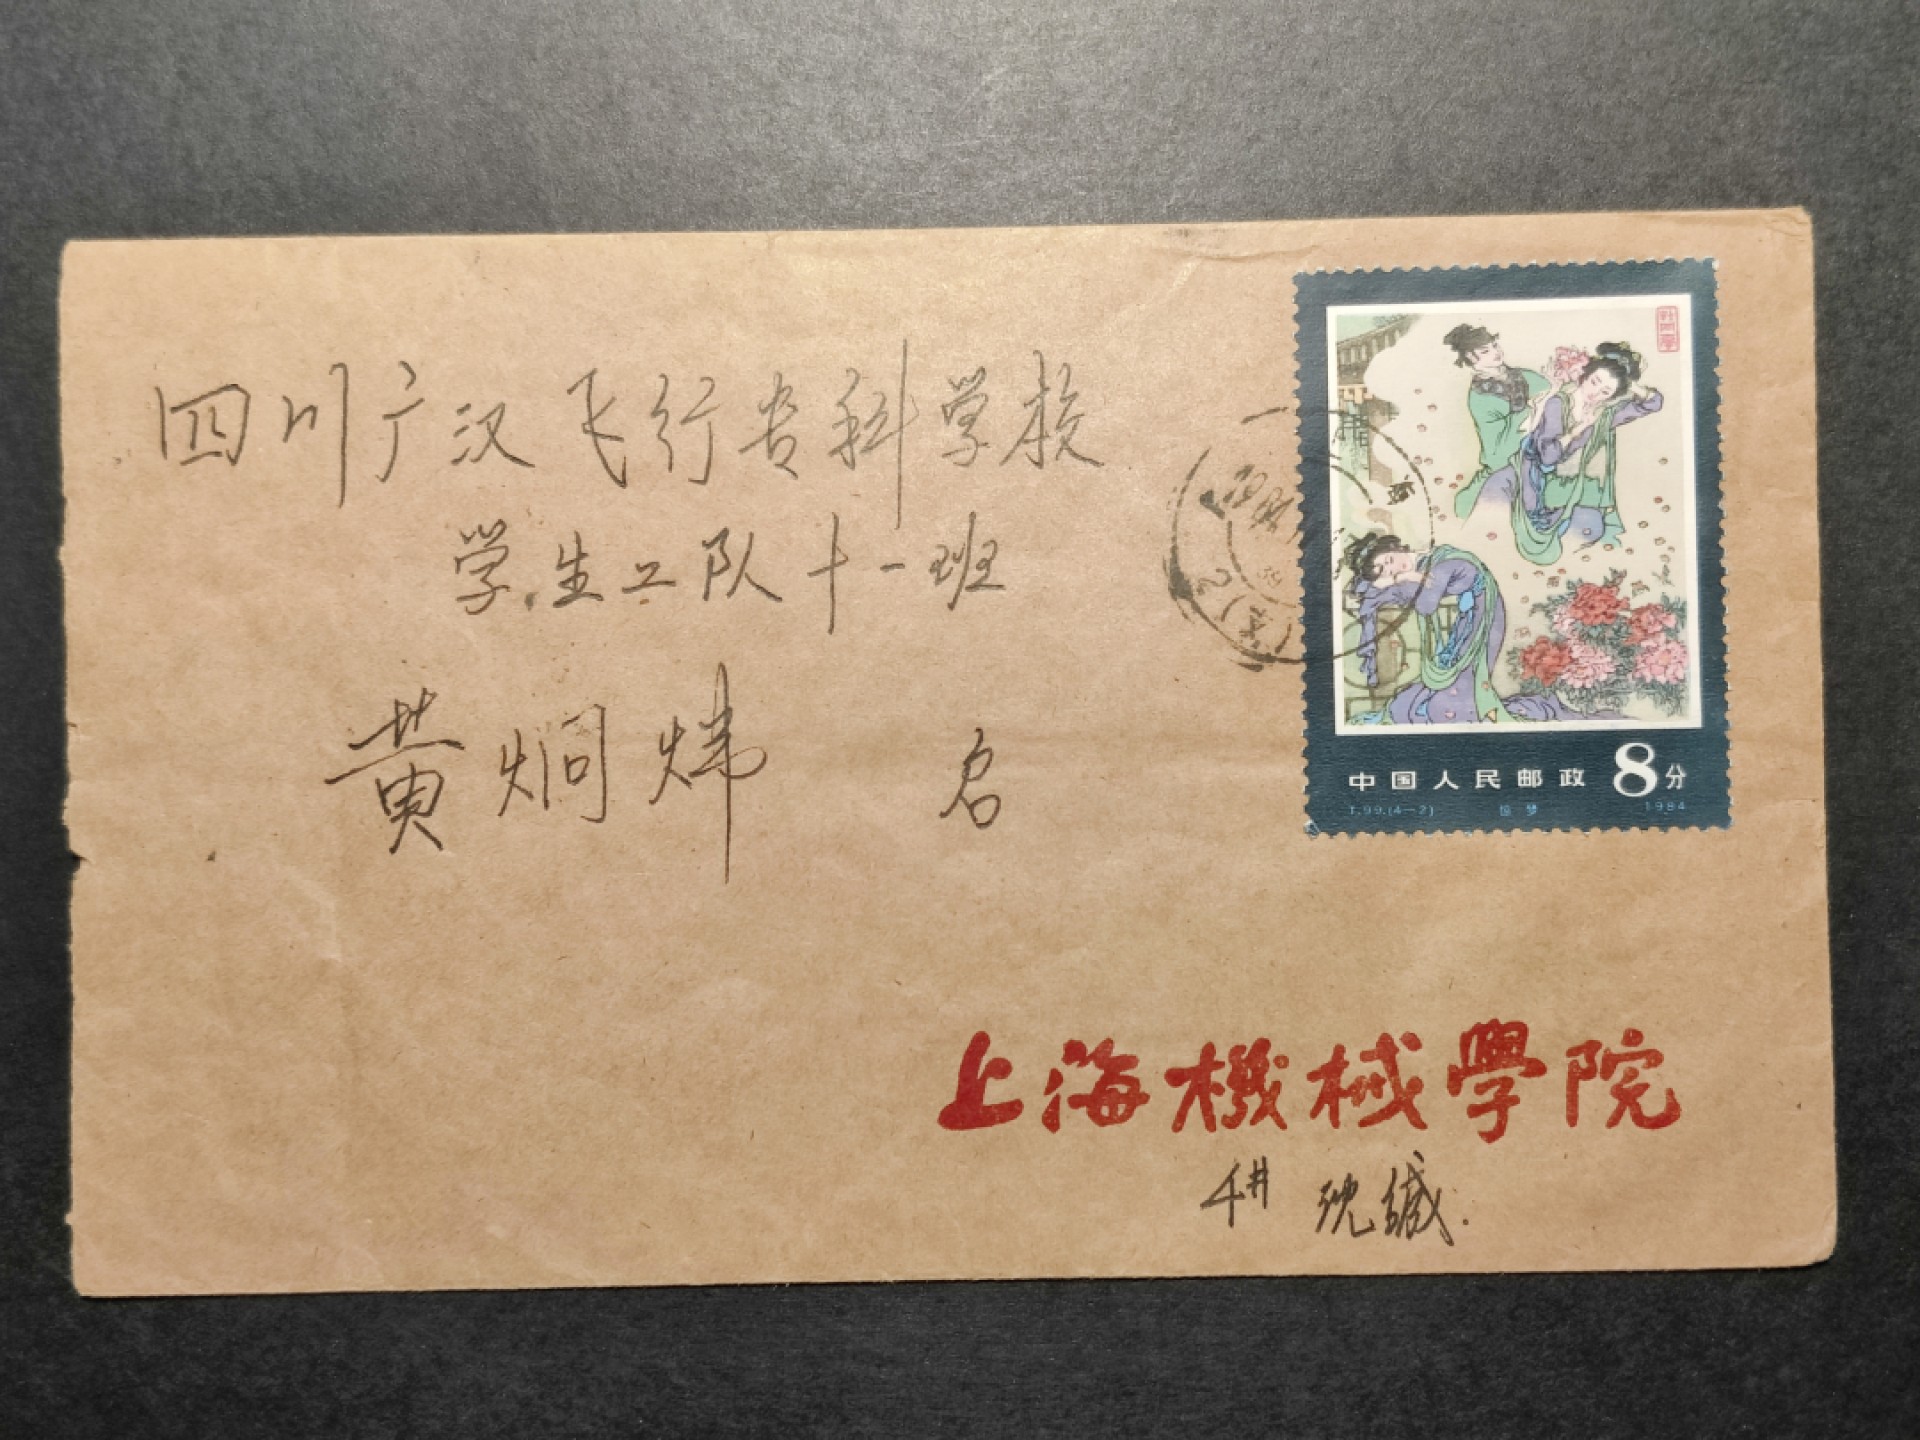 四川广汉飞行专科学校
学生二队十一班
黄炯炜 名
牡丹亭
中国人民邮政 8分
T.99.(4—2) 惊梦 1984
上海
上海機械學院
沈缄.